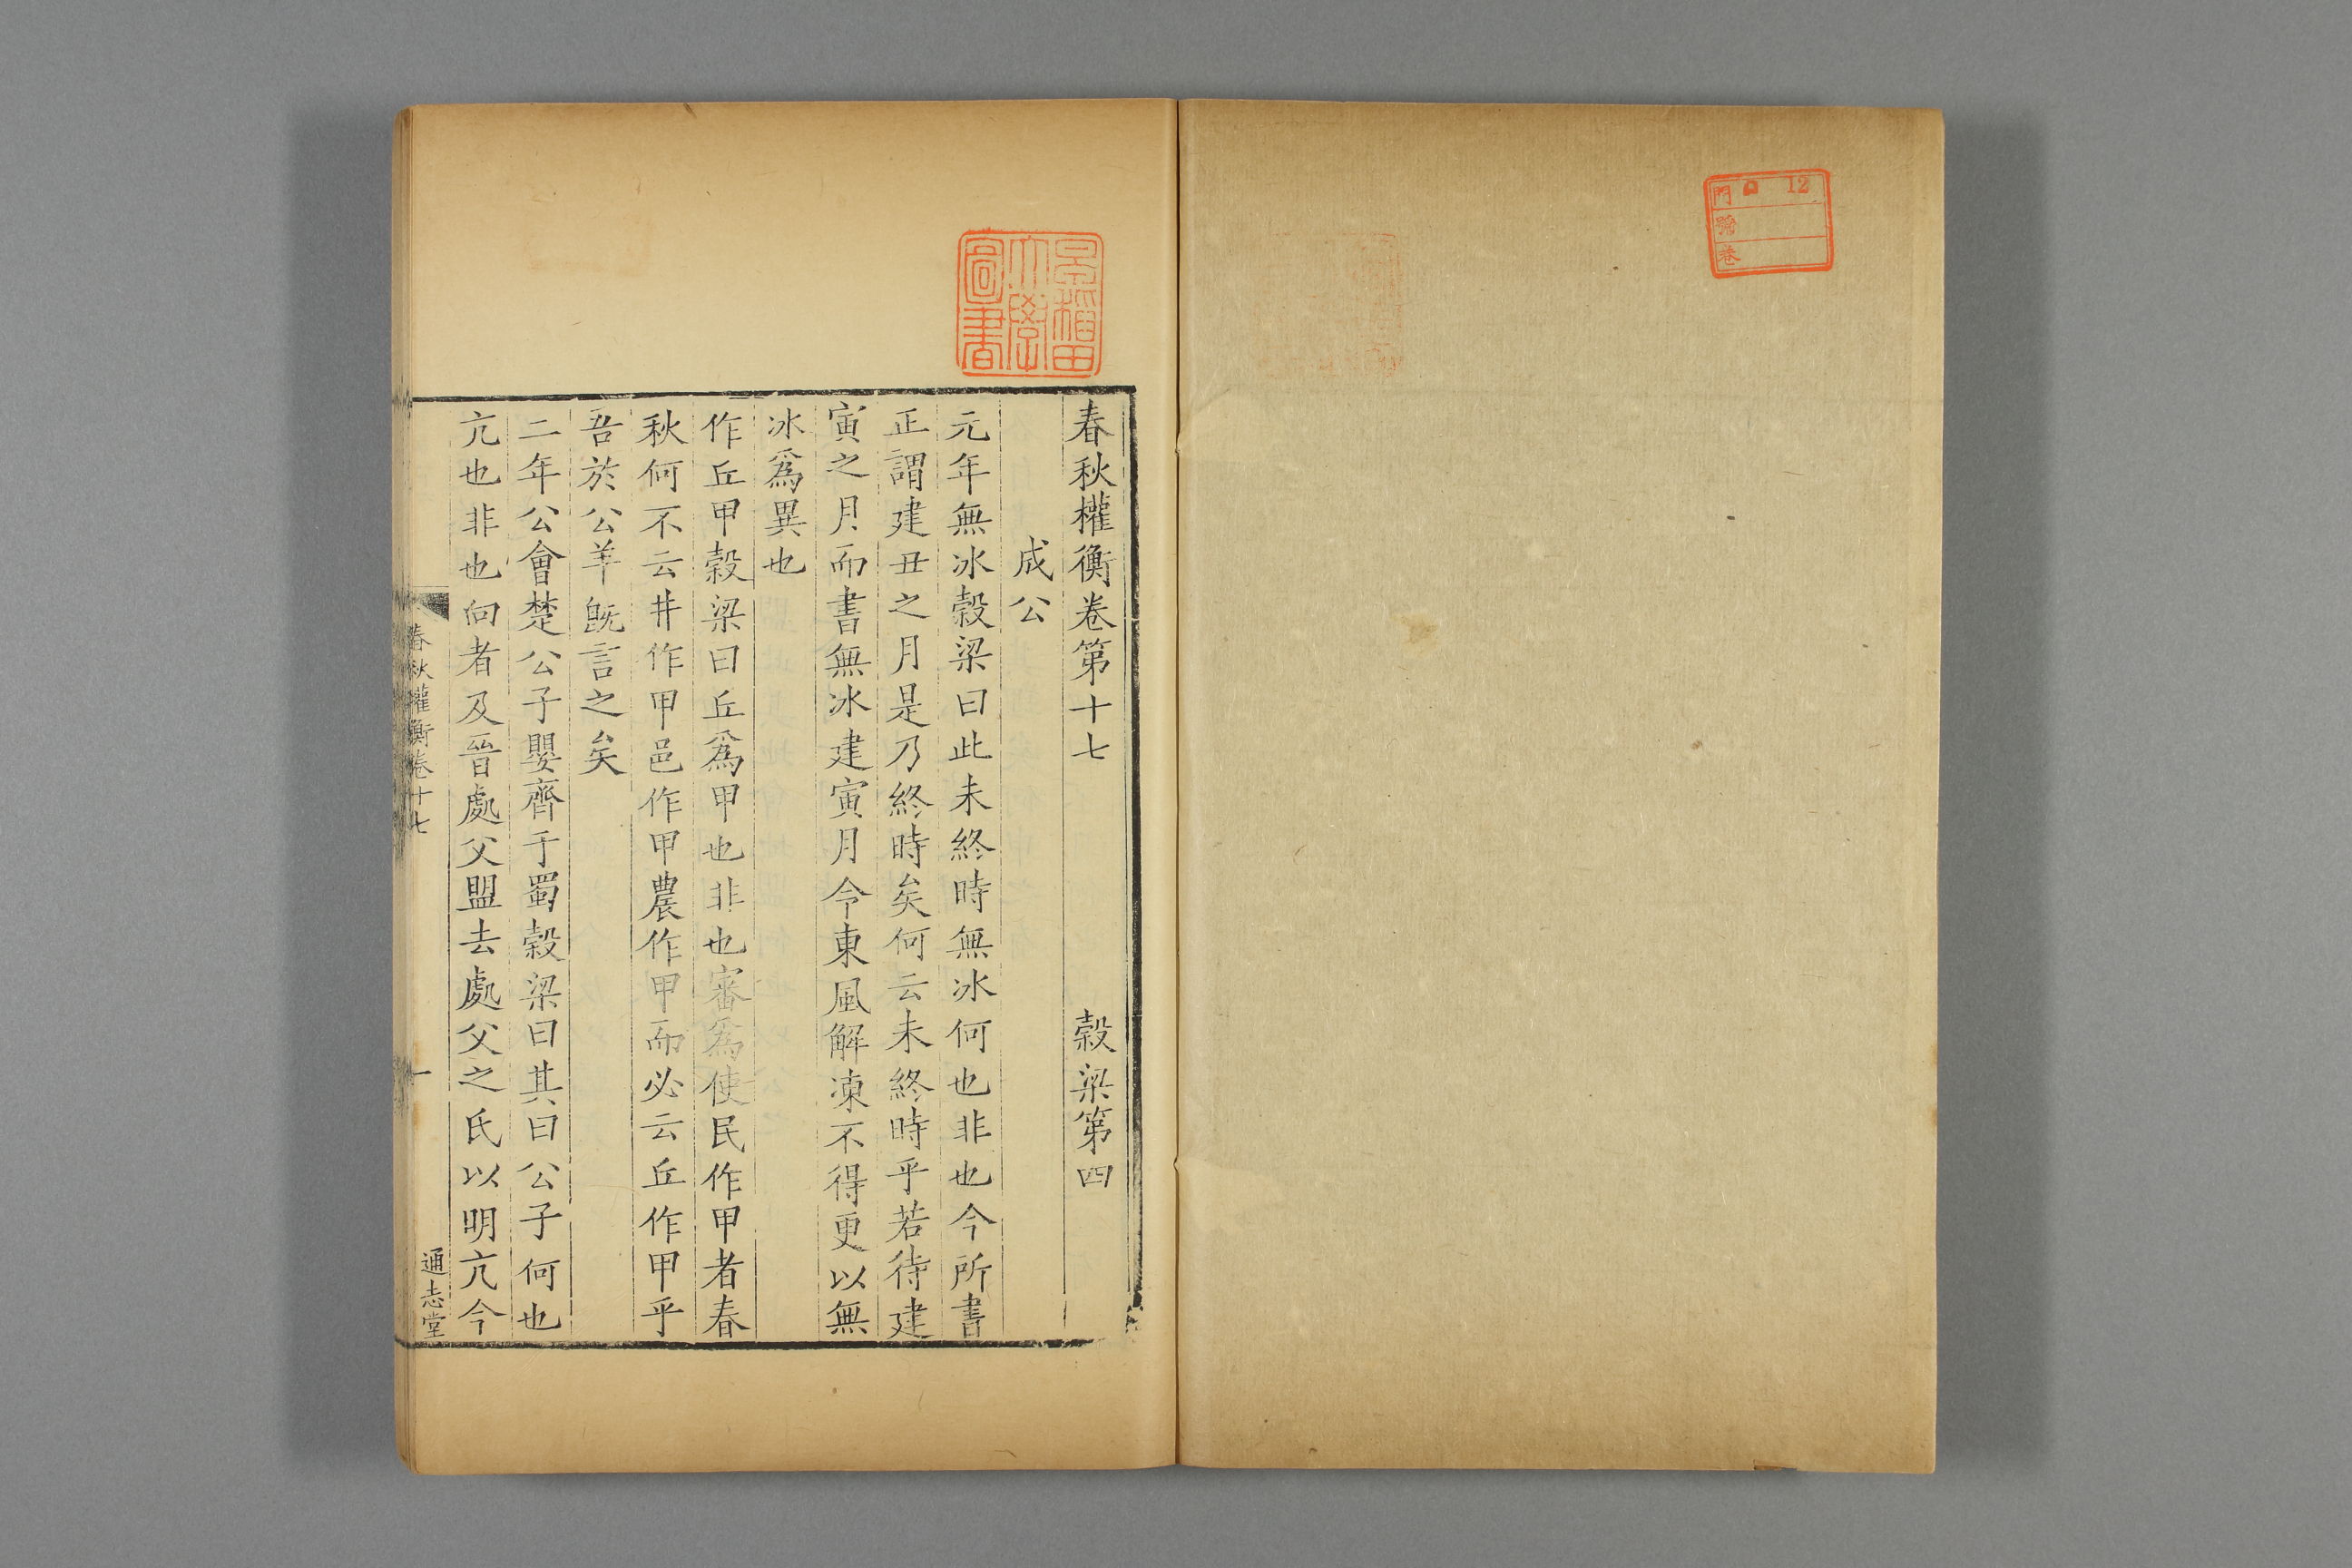 門 口 12
號
卷
早稲田
大學
圖書
春秋權衡卷第十七 穀梁第四
成公
元年無冰穀梁曰此未終時無冰何也非也今所書
正謂建丑之月是乃終時矣何云未終時乎若待建
寅之月而書無冰建寅月令東風解凍不得更以無
冰爲異也
作丘甲穀梁曰丘爲甲也非也審爲使民作甲者春
秋何不云井作甲邑作甲農作甲而必云丘作甲乎
吾於公羊旣言之矣
二年公會楚公子嬰齊于蜀穀梁曰其曰公子何也
亢也非也向者及晉處父盟去處父之氏以明亢今
春秋權衡卷十七 一 通志堂